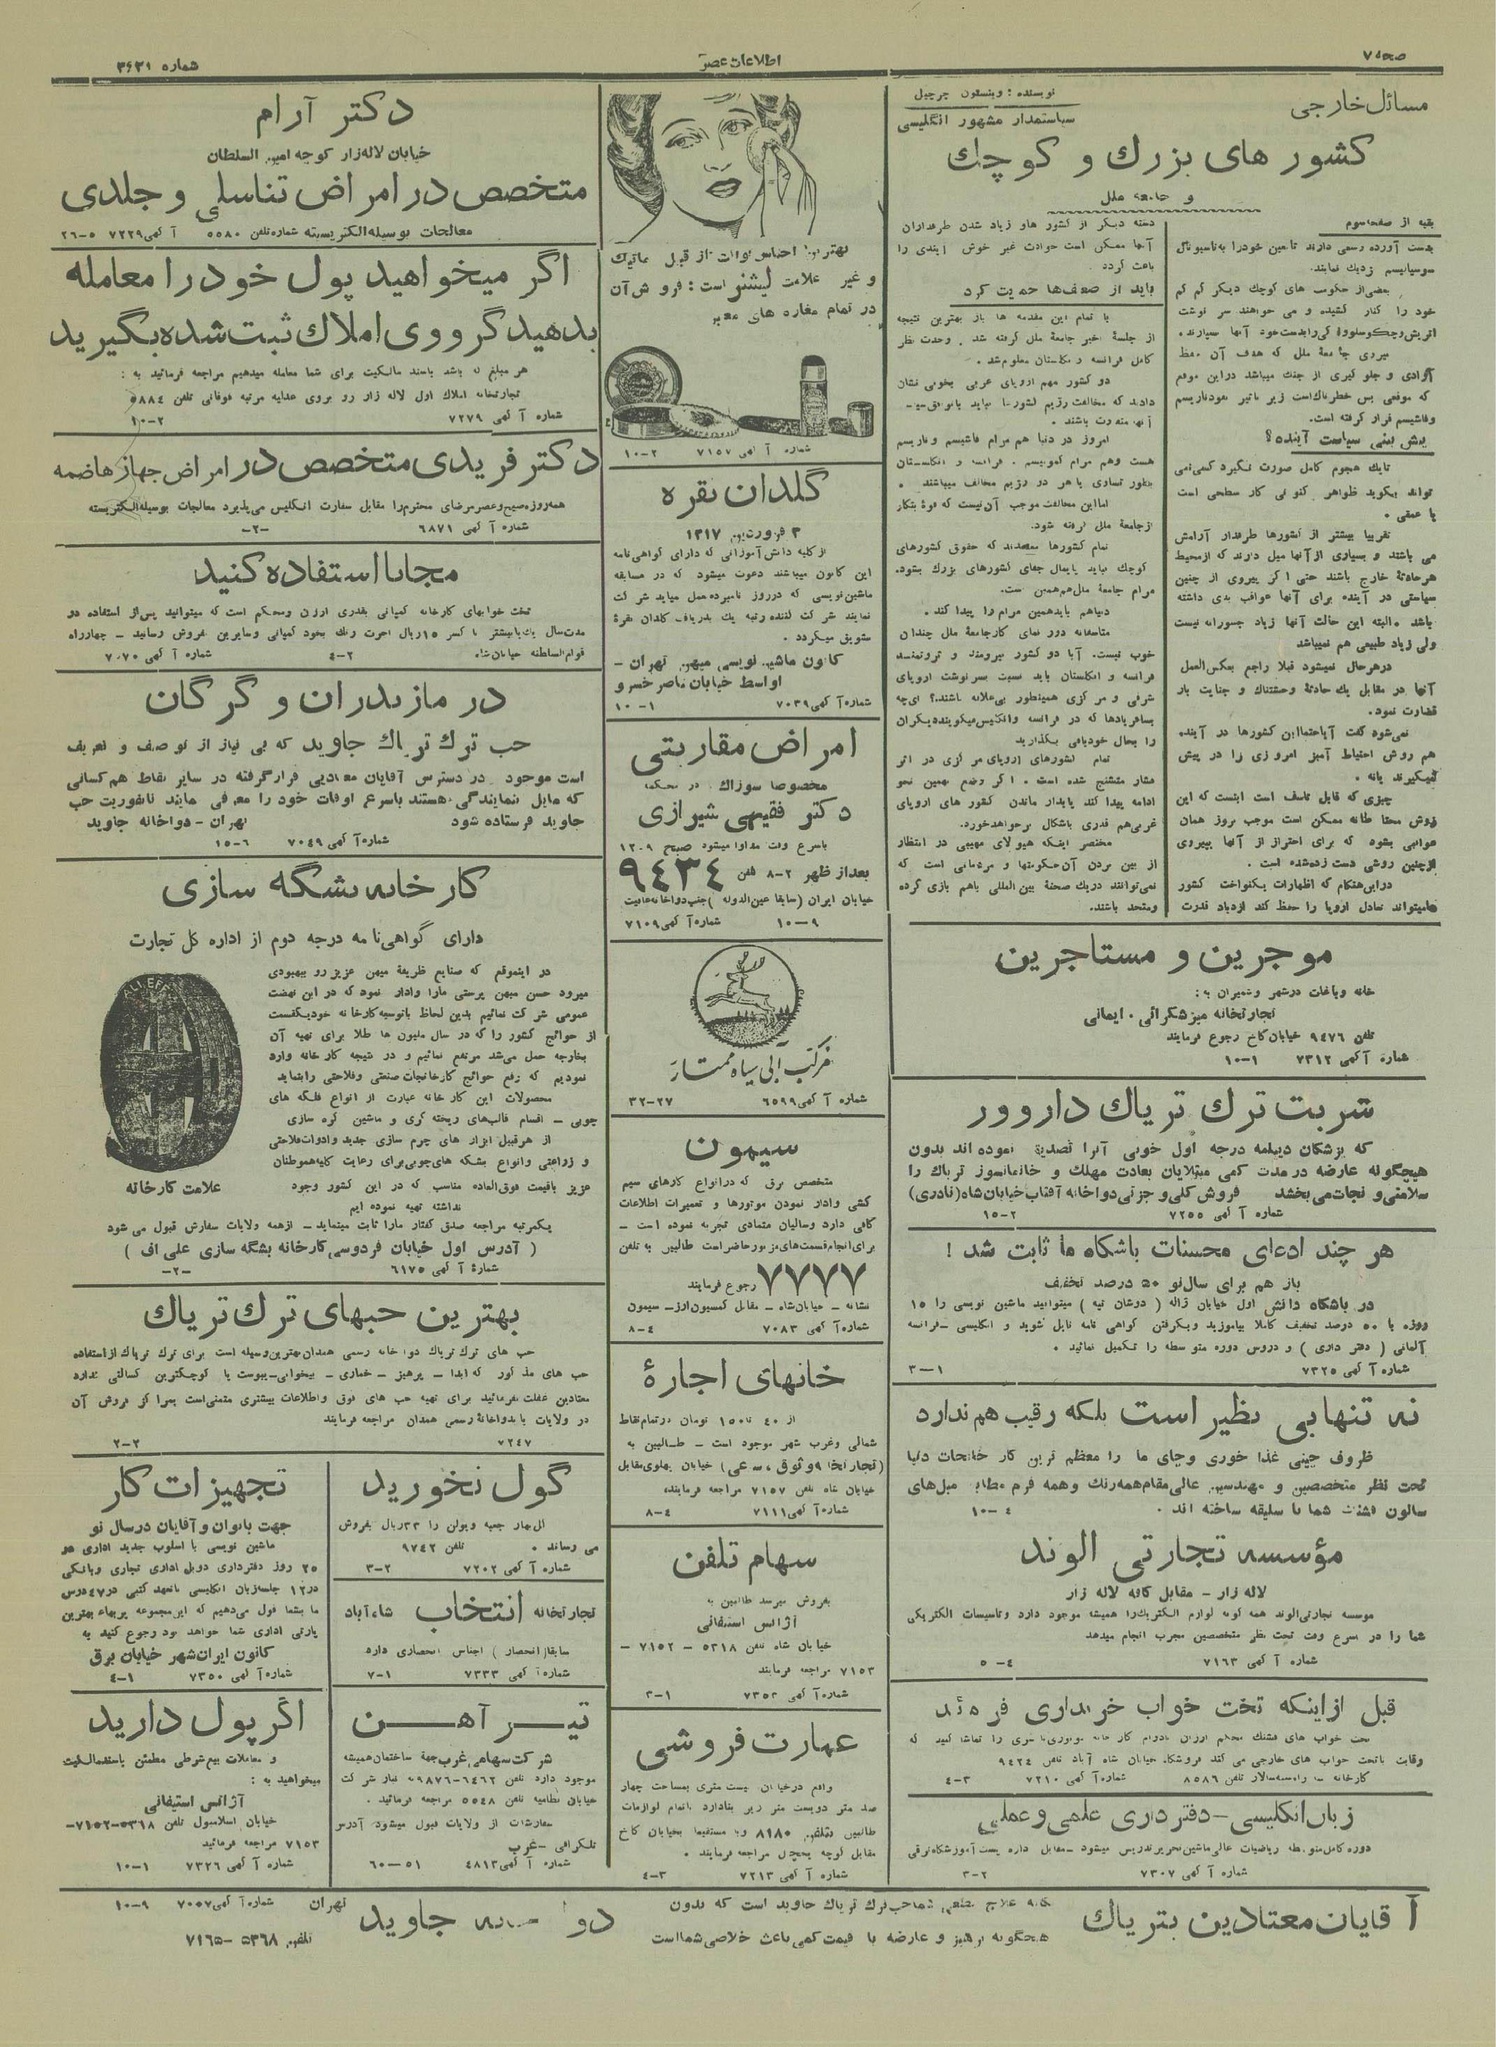 صفحه ۷
اطلاعات عصر
شماره ۳۶۳۱
مسائل خارجی
نویسنده : وینستون چرچیل
سیاستمدار مشهور انگلیسی
کشور های بزرك و کوچك
و جامعه ملل
بقیه از صفحه سوم
بدست آورده رسمی دارند تأمین خود را به ناسیونال
سوسیالیسم نزدیك نمایند.
بعضی از حکومت های کوچك دیگر کم کم
خود را کنار کشیده و می خواهند سر نوشت
مردی جامعهٔ ملل که هدف آن حفظ
آزادی و جلو گیری از جنك میباشد در این موقع
که موقعی بس خطرناك است زیر تأثیر
وفاشیسم قرار گرفته است.
پیش بینی سیاست آینده ؟
تایك هجوم کامل صورت نگیرد کسی نمی
تواند بگوید ظواهر کنونی کار سطحی است
یا عمقی .
تقریبا بیشتر از کشورها طرفدار آرامش
می باشند و بسیاری از آنها میل دارند که از محیط
هر حادثهٔ خارج باشند حتی اگر پیروی از چنین
سیاستی در آینده برای آنها عواقب بدی داشته
باشد . البته این حالت آنها زیاد جسورانه نیست
ولی زیاد طبیعی هم نمیباشد
در هر حال نمیشود قبلا راجع بعکس العمل
آنها در مقابل یك حادثهٔ وحشتناك و جنایت بار
قضاوت نمود.
نمی شود گفت آیا حتما این کشورها در آینده
هم روش احتیاط آمیز امروزی را در پیش
میگیرند یا نه .
چیزی که قابل تأسف است اینست که این
روش محتاطانه ممکن است موجب بروز همان
عواقبی بشود که برای احتراز از آنها بپیروی
از چنین روشی دست زده شده است .
در این هنگام که اظهارات یکنواخت کشور
ها میتواند تعادل اروپا را حفظ کند ازدیاد قدرت
دسته دیگر از کشور ها و زیاد شدن طرفداران
آنها ممکن است حوادث غیر خوش آیندی را
باعث گردد
باید از ضعف‌ها حمایت کرد
با تمام این مقدمه ها باز بهترین نتیجه
از جلسهٔ اخیر جامعهٔ ملل گرفته شد . وحدت نظر
کامل فرانسه و انگلستان معلوم شد .
دو کشور مهم اروپای غربی بخوبی نشان
دادند که مخالفت رژیم کشورها نباید
امروز در دنیا هم مرام فاشیسم و نازیسم
هست وهم مرام کمونیسم . فرانسه و انگلستان
بطور تساوی با هر دو رژیم مخالف میباشند .
اما این مخالفت موجب آن نیست که
از جامعهٔ ملل گرفته شود.
تمام کشورها معتقدند که حقوق کشورهای
کوچك نباید پایمال جفای کشورهای بزرك بشود.
مرام جامعهٔ ملل هم همین است.
دنیا هم باید همین مرام را پیدا کند .
متأسفانه دور نمای کار جامعهٔ ملل چندان
خوب نیست. آیا دو کشور نیرومند و ثروتمند
فرانسه و انگلستان باید نسبت بسرنوشت اروپای
شرقی و مرکزی همینطور بی علاقه باشند؟ ای چه
بسا فریادها که در فرانسه و انگلیس میگویند دیگران
را بحال خود باقی بگذارید
تمام کشورهای اروپای مرکزی در اثر
فشار متشنج شده است . اگر وضع بهمین نحو
ادامه پیدا کند پایدار ماندن کشور های اروپای
غربی هم قدری باشکال بر خواهد خورد.
مختصر اینکه هیولای مهیبی در انتظار
از بین بردن آن حکومتها و مردمانی است که
نمی‌توانند در یك صحنهٔ بین المللی باهم بازی کرده
و متحد باشند.
موجرین و مستاجرین
خانه و باغات در شهر و شمیران به :
تجارتخانه میزشکرائی . ایمانی
تلفن ۹۴۷۶ خیابان کاخ رجوع فرمایند
شماره آگهی ۷۳۱۲ ۱-۱۰
شربت ترك تریاك داروور
که پزشکان دیپلمه درجه اول خوبی آنرا تصدیق نموده اند بدون
هیچگونه عارضه در مدت کمی مبتلایان بعادت مهلك و خانمانسوز تریاك را
سلامتی و نجات می بخشد فروش کلی و جزئی دواخانه آفتاب خیابان شاه (نادری)
شماره آ گهی ۷۲۵۵ ۲-۱۵
هر چند ادعای محسنات باشگاه ما ثابت شد !
باز هم برای سال نو ۵۰ درصد تخفیف
در باشگاه دانش اول خیابان ژاله ( دوشان تپه ) میتوانید ماشین نویسی را ۱۵
روزه با ۵۰ درصد تخفیف کاملا بیاموزید و بگرفتن گواهی نامه نایل شوید و انگلیسی - فرانسه
آلمانی ( دفتر داری ) و دروس دوره متوسطه را تکمیل نمائید .
شماره آ گهی ۷۳۲۵ ۱-۳
نه تنها بی نظیر است بلکه رقیب هم ندارد
ظروف چینی غذا خوری وچای ما را معظم ترین کار خانجات دنیا
تحت نظر متخصصین و مهندسین عالی مقام همه رنك و همه فرم مطابق میل های
سالون قشنك شما با سلیقه ساخته اند . ۴-۱۰
مؤسسه تجارتی الوند
لاله زار - مقابل کافه لاله زار
موسسه تجارتی الوند همه گونه لوازم الکتریك را همیشه موجود دارد وتاسیسات الکتریکی
شما را در اسرع وقت تحت نظر متخصصین مجرب انجام میدهد
شماره آ گهی ۷۱۶۳ ۴-۵
قبل از اینکه تخت خواب خریداری فرمائید
رقابت با تخت خواب های خارجی می کند فروشگاه خیابان شاه آباد تلفن ۹۴۲۴
تلفن ۸۵۸۶ شماره آ گهی ۷۲۱۰ ۳-۴
زبان انگلیسی - دفتر داری علمی و عملی
شماره آ گهی ۷۳۰۷ ۲-۳
بهترین احساس
و غیر علامت لیشنر است : فروش آن
در تمام مغازه های معتبر
شماره آ گهی ۷۱۵۷ ۲-۱۰
گلدان نقره
۳ فروردین ۱۳۱۷
از کلیه دانش آموزانی که دارای گواهی نامه
این کانون میباشند دعوت میشود که در مسابقه
ماشین نویسی که در روز نامبرده عمل میاید شرکت
نمایند شرکت کننده رتبه یك بدریافت گلدان نقرهٔ
تشویق میگردد .
کانون ماشین نویسی میهن تهران -
اواسط خیابان ناصر خسرو
شماره آ گهی ۷۰۳۹ ۱-۱۰
امراض مقاربتی
مخصوصا سوزاك در محکمه
دکتر فقیهی شیرازی
باسرع وقت مداوا میشود صبح ۹-۱۲
بعد از ظهر ۲-۸ تلفن ۹۴۳۴
خیابان ایران (سابقا عین الدوله ) جنب دواخانه عافیت
شماره آ گهی ۷۱۰۹ ۹-۱۰
مرکب آبی سیاه ممتاز
شماره آ گهی ۶۵۹۹ ۲۷-۳۲
سیمون
متخصص برق که در انواع کارهای سیم
کشی و ادار نمودن موتورها و تعمیرات اطلاعات
کافی دارد وسالیان متمادی تجربه نموده است -
برای انجام قسمت‌های مزبور حاضر است طالبین به تلفن
۷۷۷۷ رجوع فرمایند
نشانه - خیابان شاه - مقابل کمسیون ارز - سیمون
شماره آ گهی ۷۰۸۳ ۴-۸
خانهای اجارهٔ
از ۴۰ تا ۱۵۰ تومان در تمام نقاط
شمالی وغرب شهر موجود است - طالبین به
(تجارتخانه وثوق ، سعی) خیابان پهلوی مقابل
خیابان شاه تلفن ۷۱۵۷ مراجعه فرمایند،
شماره آ گهی ۷۱۱۱ ۴-۸
سهام تلفن
بفروش میرسد طالبین به
آژانس استیفانی
خیابان شاه تلفن ۵۳۱۸ - ۷۱۵۲ -
۷۱۵۳ مراجعه فرمایند
شماره آ گهی ۷۳۵۲ ۱-۳
عمارت فروشی
واقع در خیابان بیست متری بمساحت چهار
صد متر دویست متر زیر بنا دارد با تمام لوازمات
طالبین بتلفن ۸۱۸۰ و یا مستقیما بخیابان کاخ
مقابل کوچه یخچال مراجعه فرمایند .
شماره آ گهی ۷۲۱۳ ۳-۴
دکتر آرام
خیابان لاله زار کوچه امین السلطان
متخصص در امراض تناسلی و جلدی
معالجات بوسیله الکتریسته شماره تلفن ۵۵۸۰ آ گهی ۷۲۲۹ ۵-۲۶
اگر میخواهید پول خود را معامله
بدهید گرووی املاك ثبت شده بگیرید
هر مبلغ که باشد باسند مالکیت برای شما معامله میدهیم مراجعه فرمائید به :
تجارتخانه املاك اول لاله زار رو بروی عدلیه مرتبه فوقانی تلفن ۵۸۸۴
شماره آ گهی ۷۲۷۹ ۲-۱۰
دکتر فریدی متخصص در امراض جهاز هاضمه
همه روزه صبح و عصر مرضای محترم را مقابل سفارت انگلیس می پذیرد معالجات بوسیله الکتریسته
شماره آ گهی ۶۸۷۱ -۲-
مجانا استفاده کنید
تخت خوابهای کارخانه کمپانی بقدری ارزان ومحکم است که میتوانید پس از استفاده دو
مدت سال یك یا بیشتر با کسر ۱۵ ریال اجرت رنك بخود کمپانی وسایرین بفروش رسانید - چهارراه
قوام السلطنه خیابان شاه ۲-۴ شماره آ گهی ۷۰۷۰
در مازندران و گرگان
حب ترك تریاك جاوید که بی نیاز از توصیف و تعریف
است موجود در دسترس آقایان معتادین قرار گرفته در سایر نقاط هم کسانی
که مایل بنمایندگی هستند باسرع اوقات خود را معرفی نمایند تا بفوریت حب
جاوید فرستاده شود تهران - دواخانه جاوید
شماره آ گهی ۷۰۴۹ ۶-۱۵
کارخانه بشگه سازی
دارای گواهی نامه درجه دوم از اداره کل تجارت
ALI.EFF
علامت کارخانه
در اینموقع که صنایع ظریفهٔ میهن عزیز رو ببهبودی
میرود حسن میهن پرستی مارا وادار نمود که در این نهضت
عمومی شرکت نمائیم بدین لحاظ باتوسعه کارخانه خود یکقسمت
از حوائج کشور را که در سال ملیون ها طلا برای تهیه آن
بخارجه حمل می‌شد مرتفع نمائیم و در نتیجه کارخانه وارد
نمودیم که رفع حوائج کارخانجات صنعتی وفلاحتی را بنماید
محصولات این کارخانه عبارت از انواع فلکه های
چوبی - اقسام قالب‌های ریخته گری و ماشین کره سازی
از هر قبیل ابزار های چرم سازی جدید وادوات فلاحتی
و زراعتی وانواع بشکه های چوبی برای رعایت کلیه هموطنان
عزیز باقیمت فوق العاده مناسب که در این کشور وجود
نداشته تهیه نموده ایم
یکمرتبه مراجعه صدق گفتار مارا ثابت مینماید - از همه ولایات سفارش قبول می شود
( آدرس اول خیابان فردوسی کارخانه بشگه سازی علی اف )
شمارهٔ آ گهی ۶۱۷۵ -۲-
بهترین حبهای ترك تریاك
حب های ترك تریاك دواخانه رسمی همدان بهترین وسیله است برای ترك تریاك از استفاده
حب های مذکور که ابدا - پرهیز - خماری - بیخوابی - یبوست یا کوچکترین کسالتی ندارد
معتادین غفلت نفرمائید برای تهیه حب های فوق واطلاعات بیشتری متمنی است بمراکز فروش آن
در ولایات یا بدواخانهٔ رسمی همدان مراجعه فرمایند
۷۲۴۷ ۲-۲
گول نخورید
الی بهار جعبه ویولن را ۳۳ ریال بفروش
می رساند . تلفن ۹۷۴۲
شماره آ گهی ۷۲۰۲ ۲-۳
تجارتخانه انتخاب شاه آباد
سابقا ( انحصار ) اجناس انحصاری دارد
شماره آ گهی ۷۳۳۳ ۱-۷
تیر آهن
شرکت سهامی غرب جهة ساختمان همیشه
موجود دارد تلفن ۶۴۶۲-۹۸۷۶ انبار شرکت
خیابان نظامیه تلفن ۵۵۴۸ مراجعه فرمائید .
سفارشات از ولایات قبول میشود آدرس
تلگرافی - غرب
شماره آ گهی ۴۸۱۳ ۵۱-۶۰
تجهیزات کار
جهت بانوان و آقایان در سال نو
ماشین نویسی با اسلوب جدید اداری در
۲۵ روز دفترداری دوبل اداری تجاری و بانکی
در ۱۲ جلسه زبان انگلیسی باتعهد کتبی در ۴۷ درس
ما بشما قول می‌دهیم که این مجموعه پربهاء بهترین
پارتی اداری شما خواهد بود رجوع کنید به
کانون ایران شهر خیابان برق
شماره آ گهی ۷۳۵۰ ۱-۴
اگر پول دارید
و معاملات بیع شرطی مطمئن باسند مالکیت
میخواهید به :
آژانس استیفانی
خیابان اسلامبول تلفن ۵۳۱۸-۷۱۵۲-
۷۱۵۳ مراجعه فرمائید
شماره آ گهی ۷۳۲۶ ۱-۱۰
آقایان معتادین بتریاك
یگانه علاج قطعی شما حب ترك تریاك جاوید است که بدون
هیچگونه پرهیز و عارضه با قیمت کمی باعث خلاصی شما است
دواخانه جاوید
تهران شماره آ گهی ۷۰۵۷ ۹-۱۰
تلفن ۵۳۶۸-۷۱۶۵